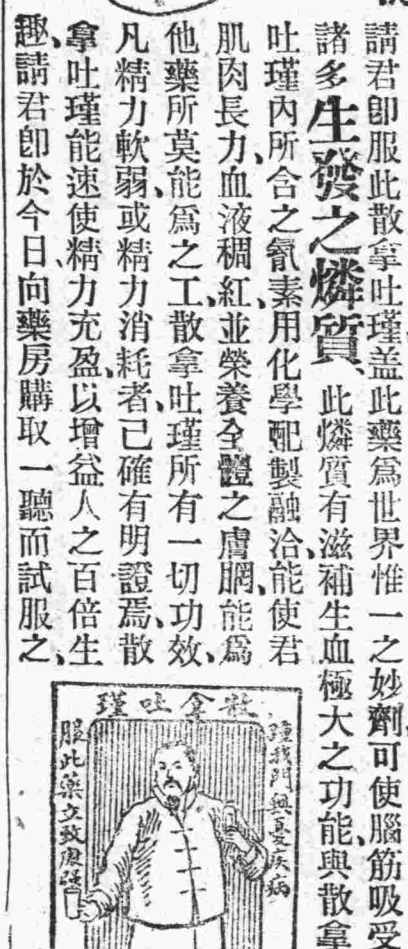 請君卽服此散拿吐瑾盖此藥爲世界惟一之妙劑、可使腦筋吸受
諸多生發之燐質、此燐質有滋補生血極大之功能、與散拿
吐瑾內所含之氮素用化學配製融洽、能使君
肌肉長力、血液稠紅、並榮養全體之膚膶、能爲
他藥所莫能爲之工、散拿吐瑾所有一切功效、
凡精力軟弱、或精力消耗者、已確有明證焉、散
拿吐瑾能速使精力充盈、以增益人之百倍生
趣、請君卽於今日、向藥房購取一聽而試服之、
散拿吐瑾
我門與憂疾病
服此藥立致康强